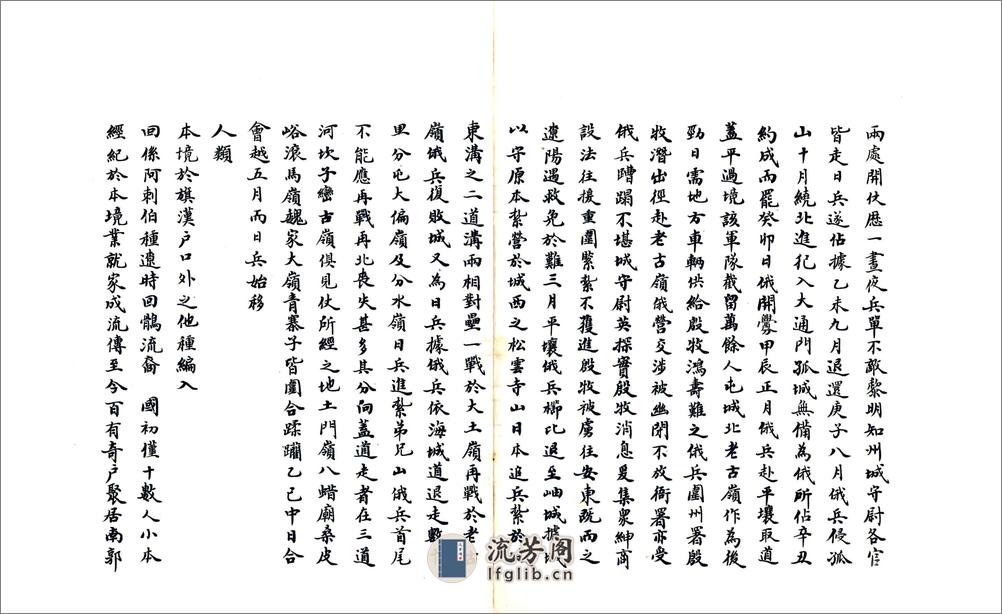 兩處開仗歷一晝夜兵單不敵黎明知州城守尉各官
皆走日兵遂佔據乙未九月退還庚子八月俄兵侵孤
山十月繞北進犯入大通門孤城無備為俄所佔辛丑
約成而罷癸卯日俄開釁甲辰正月俄兵赴平壤取道
蓋平過境該軍隊截留萬餘人屯城北老古嶺作為後
勁日需地方車輌供給殷牧鴻壽難之俄兵圍州署殷
牧潛出徑赴老古嶺俄營交涉被幽閉不放衙署亦受
俄兵蹧蹋不堪城守尉英探實殷牧消息爰集衆紳商
設法往援重圍緊紮不獲進殷牧被虜往安東既而之
遼陽遇救免於難三月平壤俄兵櫛比退至岫城據城
以守原本紮營於城西之松雲寺山日本追兵紮於
東溝之二道溝兩相對壘一戰於大土嶺再戰於老
嶺俄兵復敗城又為日兵據俄兵依海城道退走數
里分屯大偏嶺及分水嶺日兵進紮弟兄山俄兵首尾
不能應再戰再北喪失甚多其分向蓋道走者在三道
河坎子巒古嶺俱見仗所經之地土門嶺八蜡廟桑皮
峪滾馬嶺魏家大嶺青寨子皆圍合蹂躪乙巳中日合
會越五月而日兵始移
人類
本境於旗漢戶口外之他種編入
回係阿刺伯種遼時回鶻流裔 國初僅十數人小本
經紀於本境業就家成流傳至今百有奇戶聚居南郭
流芳閣
lfglib.cn